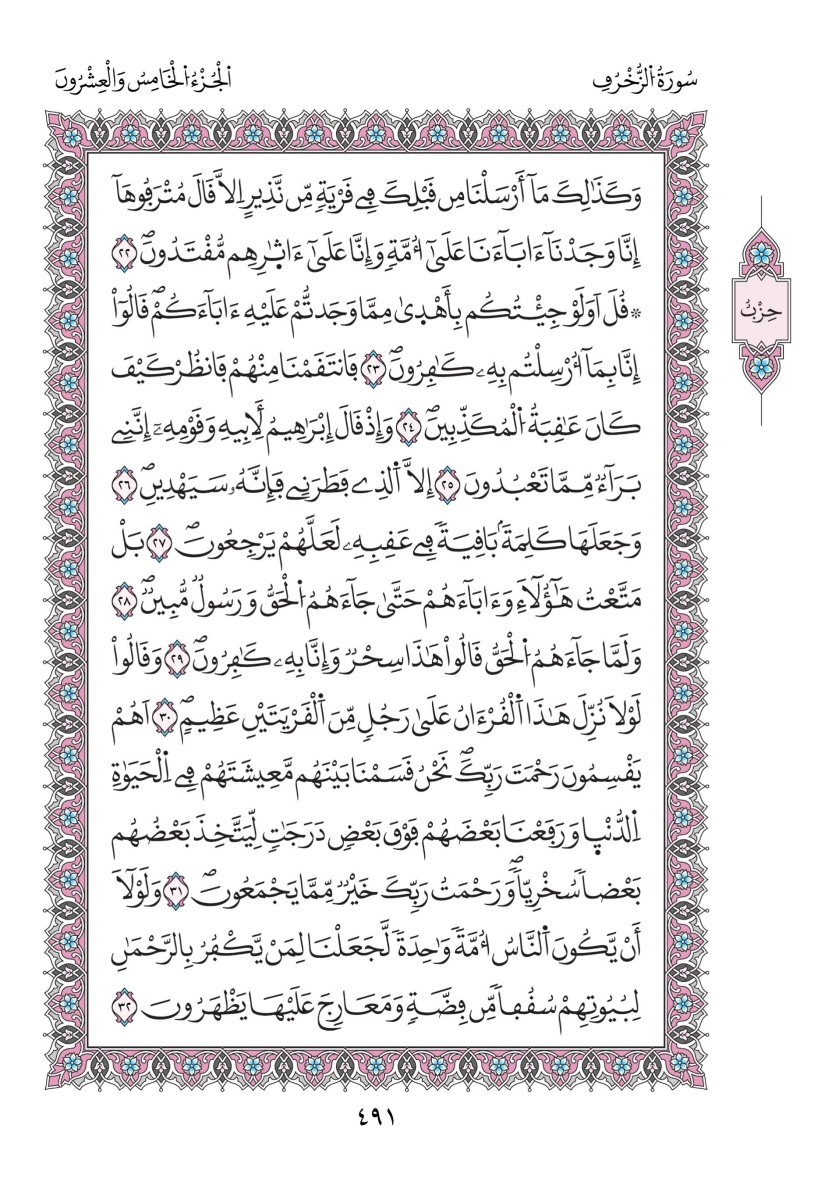 سُورَةُ الزُّخْرُفِ
اَلْجُزْءُ الْخَامِسُ وَالْعِشْرُونَ
وَكَذَٰلِكَ مَآ أَرْسَلْنَا مِن قَبْلِكَ فِي قَرْيَةٖ مِّن نَّذِيرٍ اِلَّا قَالَ مُتْرَفُوهَآ
إِنَّا وَجَدْنَآ ءَابَآءَنَا عَلَىٰٓ أُمَّةٖ وَإِنَّا عَلَىٰٓ ءَاثٰٜرِهِم مُّقْتَدُونَۖ ٢٢
۞ قُلَ اَوَلَوْ جِئْتُكُم بِأَهْدٜىٰ مِمَّا وَجَدتُّمْ عَلَيْهِ ءَابَآءَكُمْۖ قَالُوٓاْ
إِنَّا بِمَآ أُرْسِلْتُم بِهِۦ كَٰفِرُونَۖ ٢٣ فَانتَقَمْنَا مِنْهُمْ فَانظُرْ كَيْفَ
كَانَ عَٰقِبَةُ اُ۬لْمُكَذِّبِينَۖ ٢٤ وَإِذْ قَالَ إِبْرَٰهِيمُ لِأَبِيهِ وَقَوْمِهِۦٓ إِنَّنِے
بَرَآءٞ مِّمَّا تَعْبُدُونَ ٢٥ إِلَّا اَ۬لذِے فَطَرَنِے فَإِنَّهُۥ سَيَهْدِينِۖ ٢٦
وَجَعَلَهَا كَلِمَةَۢ بَاقِيَةٗ فِے عَقِبِهِۦ لَعَلَّهُمْ يَرْجِعُونَۖ ٢٧ بَلْ
مَتَّعْتُ هَٰٓؤُلَآءِ وَءَابَآءَهُمْ حَتَّىٰ جَآءَهُمُ اُ۬لْحَقُّ وَرَسُولٞ مُّبِينٞۖ ٢٨
وَلَمَّا جَآءَهُمُ اُ۬لْحَقُّ قَالُواْ هَٰذَا سِحْرٞ وَإِنَّا بِهِۦ كَٰفِرُونَۖ ٢٩ وَقَالُواْ
لَوْلَا نُزِّلَ هَٰذَا اَ۬لْقُرْءَانُ عَلَىٰ رَجُلٖ مِّنَ اَ۬لْقَرْيَتَيْنِ عَظِيمٍۖ ٣٠ اَهُمْ
يَقْسِمُونَ رَحْمَتَ رَبِّكَۖ نَحْنُ قَسَمْنَا بَيْنَهُم مَّعِيشَتَهُمْ فِے اِ۬لْحَيَوٰةِ
اِ۬لدُّنْيٜا وَرَفَعْنَا بَعْضَهُمْ فَوْقَ بَعْضٖ دَرَجَٰتٖ لِّيَتَّخِذَ بَعْضُهُم
بَعْضاٗ سُخْرِيّاٗۖ وَرَحْمَتُ رَبِّكَ خَيْرٞ مِّمَّا يَجْمَعُونَۖ ٣١ وَلَوْلَآ
أَنْ يَّكُونَ اَ۬لنَّاسُ أُمَّةٗ وَٰحِدَةٗ لَّجَعَلْنَا لِمَنْ يَّكْفُرُ بِالرَّحْمَٰنِ
لِبُيُوتِهِمْ سُقُفاٗ مِّن فِضَّةٖ وَمَعَارِجَ عَلَيْهَا يَظْهَرُونَ ٣٢
حِزْبٌ
٤٩١